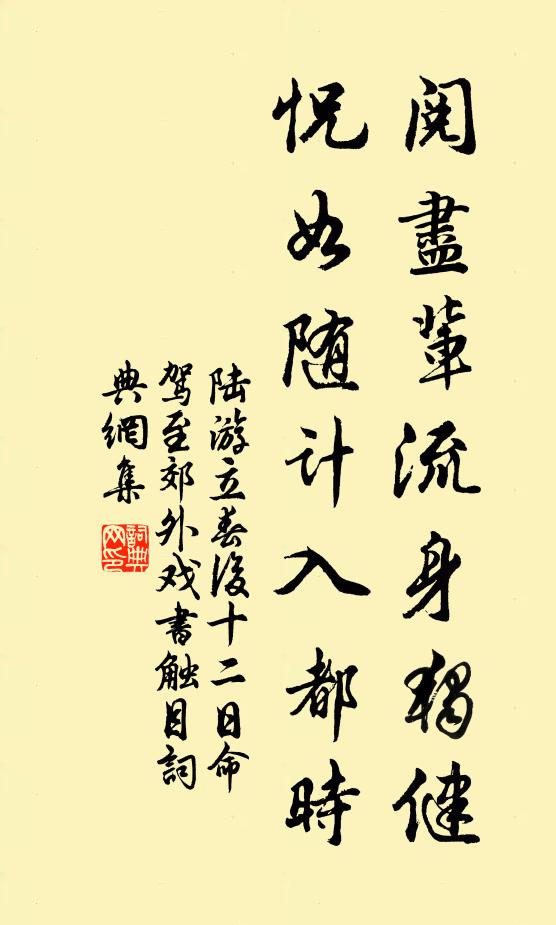 閱盡輩流身獨健
怳如随计入都時
陆游立春後十二日命
驾至郊外戏書触目詞
典網集
詞典网印